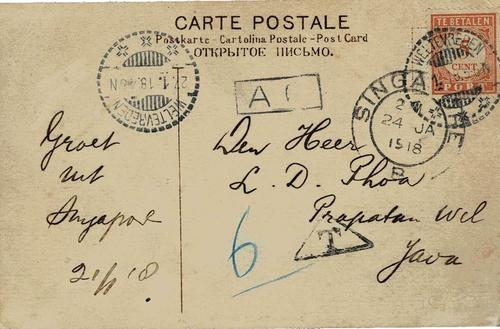 CARTE POSTALE
Postkarte - Cartolina Postale - Post Card
ОТКРЫТОЕ ПИСЬМО.
TE BETALEN
CENT
PORT
WELTEVREDEN
WELTEVREDEN
A C
SINGAPORE
24 JA
1918
B
Groet
uit
Singapore
Den Heer
L. D. Phoa
Prapatan Wel
Java
6
T